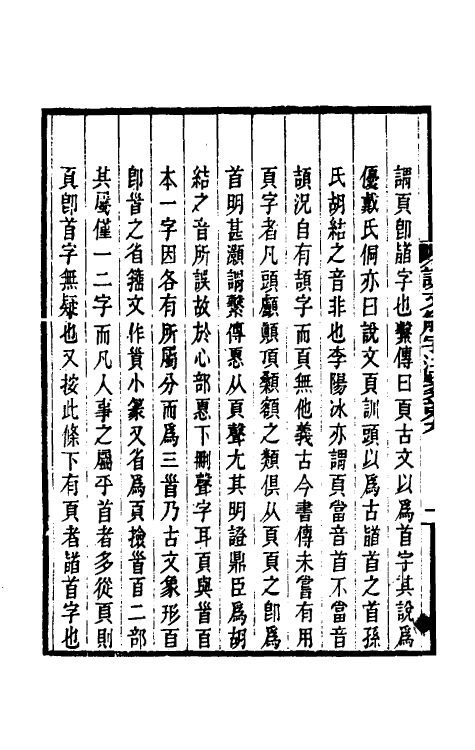 謂頁卽䭫字也繫傳曰頁古文以爲首字其說爲
優戴氏侗亦曰說文頁訓頭以爲古䭫首之首孫
氏胡結之音非也李陽冰亦謂頁當音首不當音
頡況自有頡字而頁無他義古今書傳未嘗有用
頁字者凡頭顱顚頂顙額之類俱从頁頁之卽爲
首明甚灝謂繫傳惪从頁聲尤其明證鼎臣爲胡
結之音所誤故於心部惪下刪聲字耳頁與𩠐百
本一字因各有所屬分而爲三𩠐乃古文象形百
卽𩠐之省籒文作𩠐小篆又省爲頁撿𩠐百二部
其屬僅一二字而凡人事之屬乎首者多從頁則
頁卽首字無疑也又按此條下有頁者䭫首字也
說文解字注箋